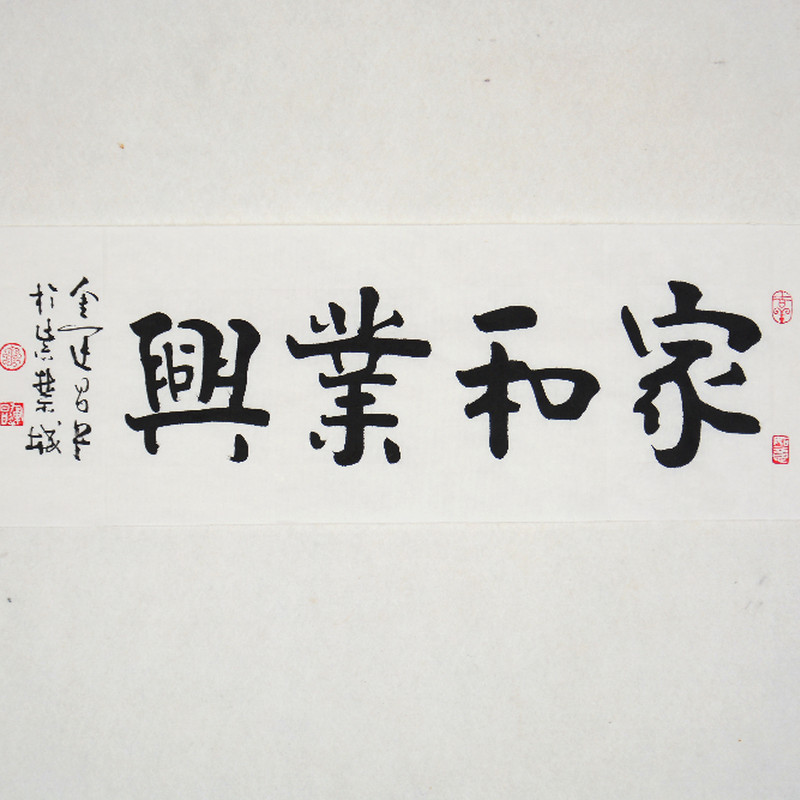 家和業興
金運昌書
於紫禁城